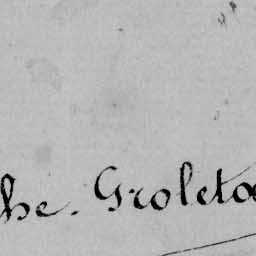 he. Groleta